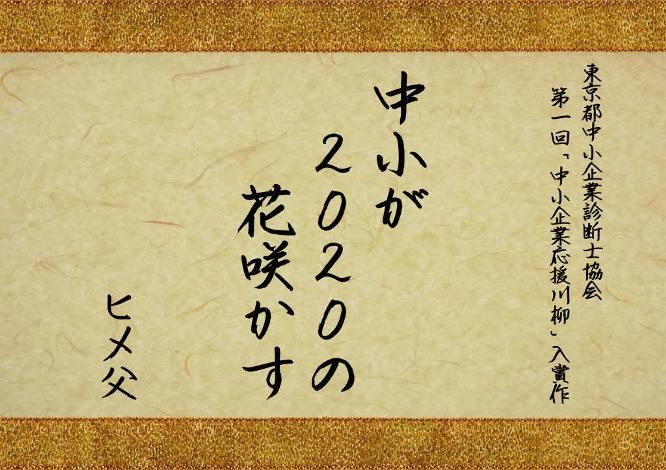 東京都中小企業診断士協会
第一回「中小企業応援川柳」入賞作
中小が
2020の
花咲かす
ヒメ父